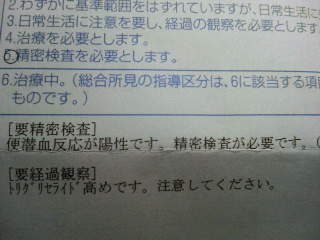 2.わずかに基準範囲をはずれていますが、日常生活に
3.日常生活に注意を要し、経過の観察を必要とします
4.治療を必要とします。
5.精密検査を必要とします。
6.治療中。(総合所見の指導区分は、6に該当する項目
ものです。)
[要精密検査]
便潜血反応が陽性です。精密検査が必要です。(
[要経過観察]
ﾄﾘｸﾞﾘｾﾗｲﾄﾞ高めです。注意してください。